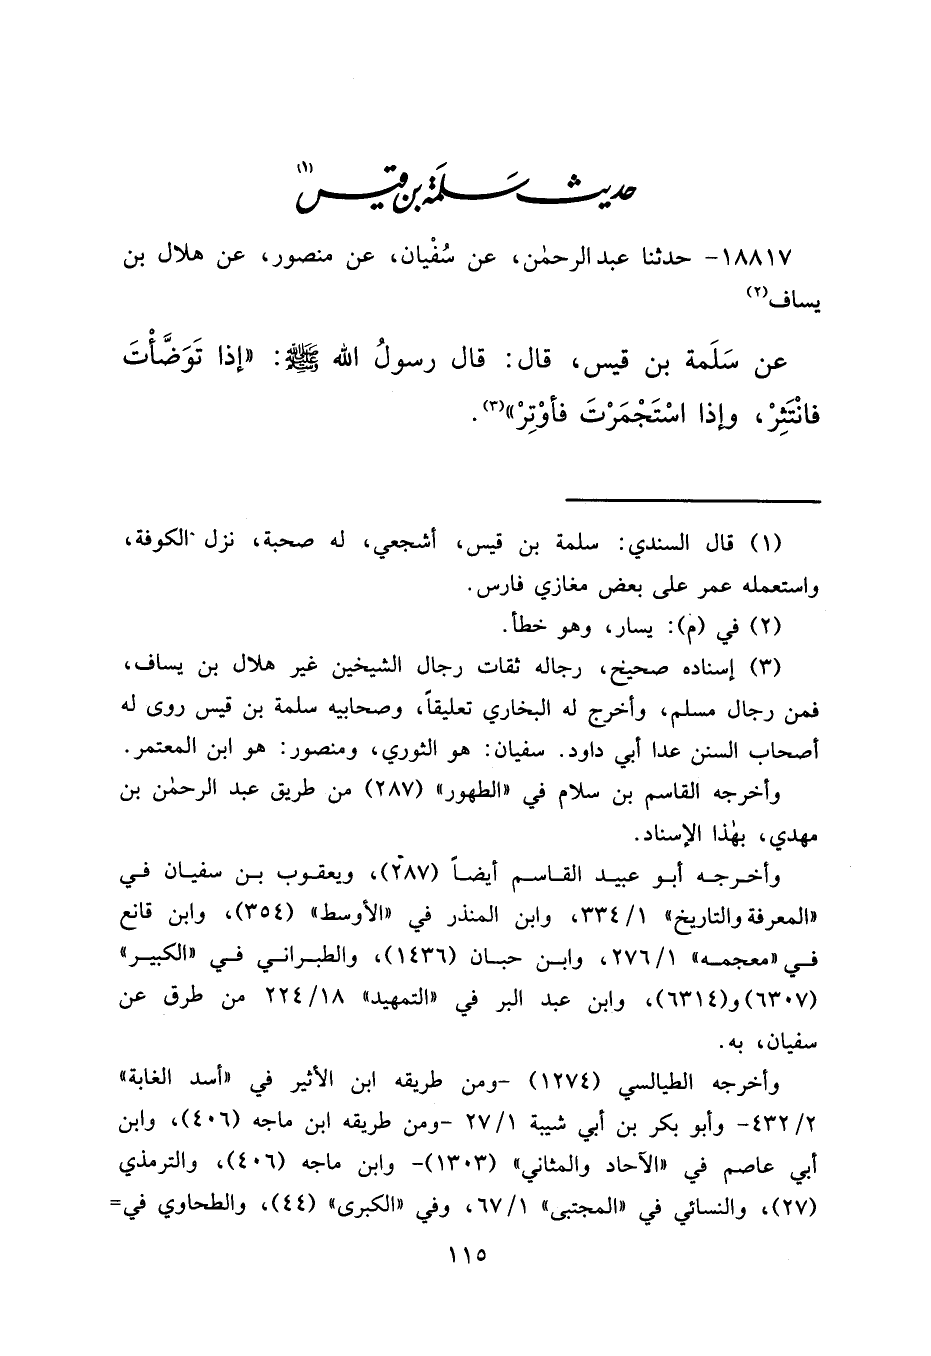 حديث سلمة بن قيس (١)
١٨٨١٧- حدثنا عبد الرحمٰن، عن سُفْيان، عن منصور، عن هلال بن
يساف(٢)
عن سَلَمة بن قيس، قال: قال رسولُ الله ﷺ: «إذا تَوَضَّأْتَ
فانْتَثِرْ، وإذا اسْتَجْمَرْتَ فأَوْتِرْ»(٣).
(١) قال السندي: سلمة بن قيس، أشجعي، له صحبة، نزل الكوفة،
واستعمله عمر على بعض مغازي فارس.
(٢) في (م): يسار، وهو خطأ.
(٣) إسناده صحيح، رجاله ثقات رجال الشيخين غير هلال بن يساف،
فمن رجال مسلم، وأخرج له البخاري تعليقاً، وصحابيه سلمة بن قيس روى له
أصحاب السنن عدا أبي داود. سفيان: هو الثوري، ومنصور: هو ابن المعتمر.
وأخرجه القاسم بن سلام في «الطهور» (٢٨٧) من طريق عبد الرحمٰن بن
مهدي، بهٰذا الإسناد.
وأخرجه أبو عبيد القاسم أيضاً (٢٨٧)، ويعقوب بن سفيان في
«المعرفة والتاريخ» ٣٣٤/١، وابن المنذر في «الأوسط» (٣٥٤)، وابن قانع
في «معجمه» ٢٧٦/١، وابن حبان (١٤٣٦)، والطبراني في «الكبير»
(٦٣٠٧) و(٦٣١٤)، وابن عبد البر في «التمهيد» ٢٢٤/١٨ من طرق عن
سفيان، به.
وأخرجه الطيالسي (١٢٧٤) -ومن طريقه ابن الأثير في «أسد الغابة»
٤٣٢/٢- وأبو بكر بن أبي شيبة ٢٧/١ -ومن طريقه ابن ماجه (٤٠٦)، وابن
أبي عاصم في «الآحاد والمثاني» (١٣٠٣)- وابن ماجه (٤٠٦)، والترمذي
(٢٧)، والنسائي في «المجتبى» ٦٧/١، وفي «الكبرى» (٤٤)، والطحاوي في=
١١٥